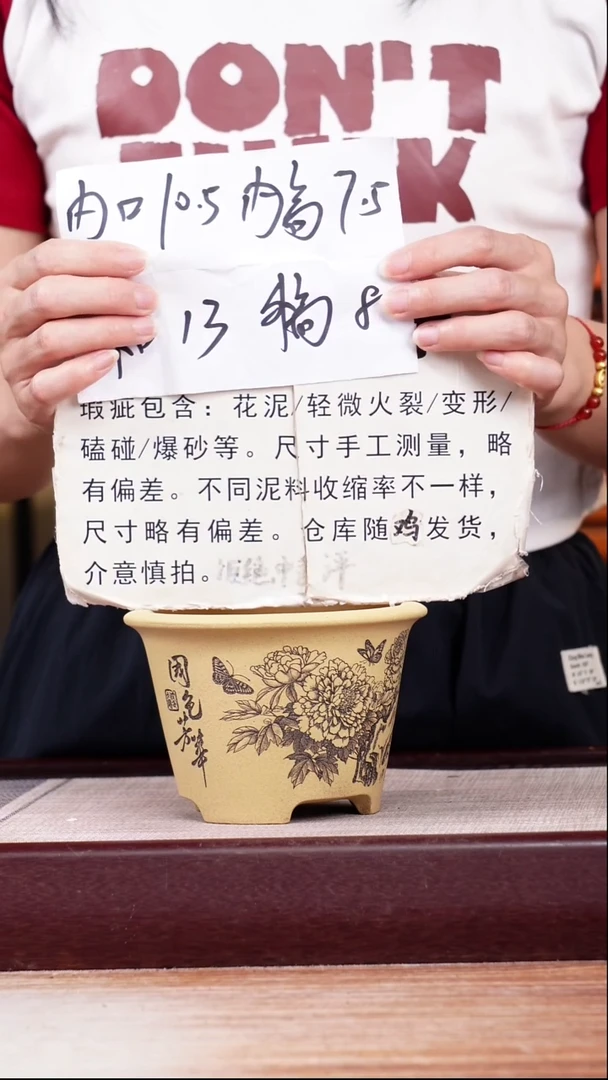 DON'T
内口10.5 内高7.5
13 高8
瑕疵包含：花泥/轻微火裂/变形/
磕碰/爆砂等。尺寸手工测量，略
有偏差。不同泥料收缩率不一样，
尺寸略有偏差。仓库随鸡发货，
介意慎拍。
国色